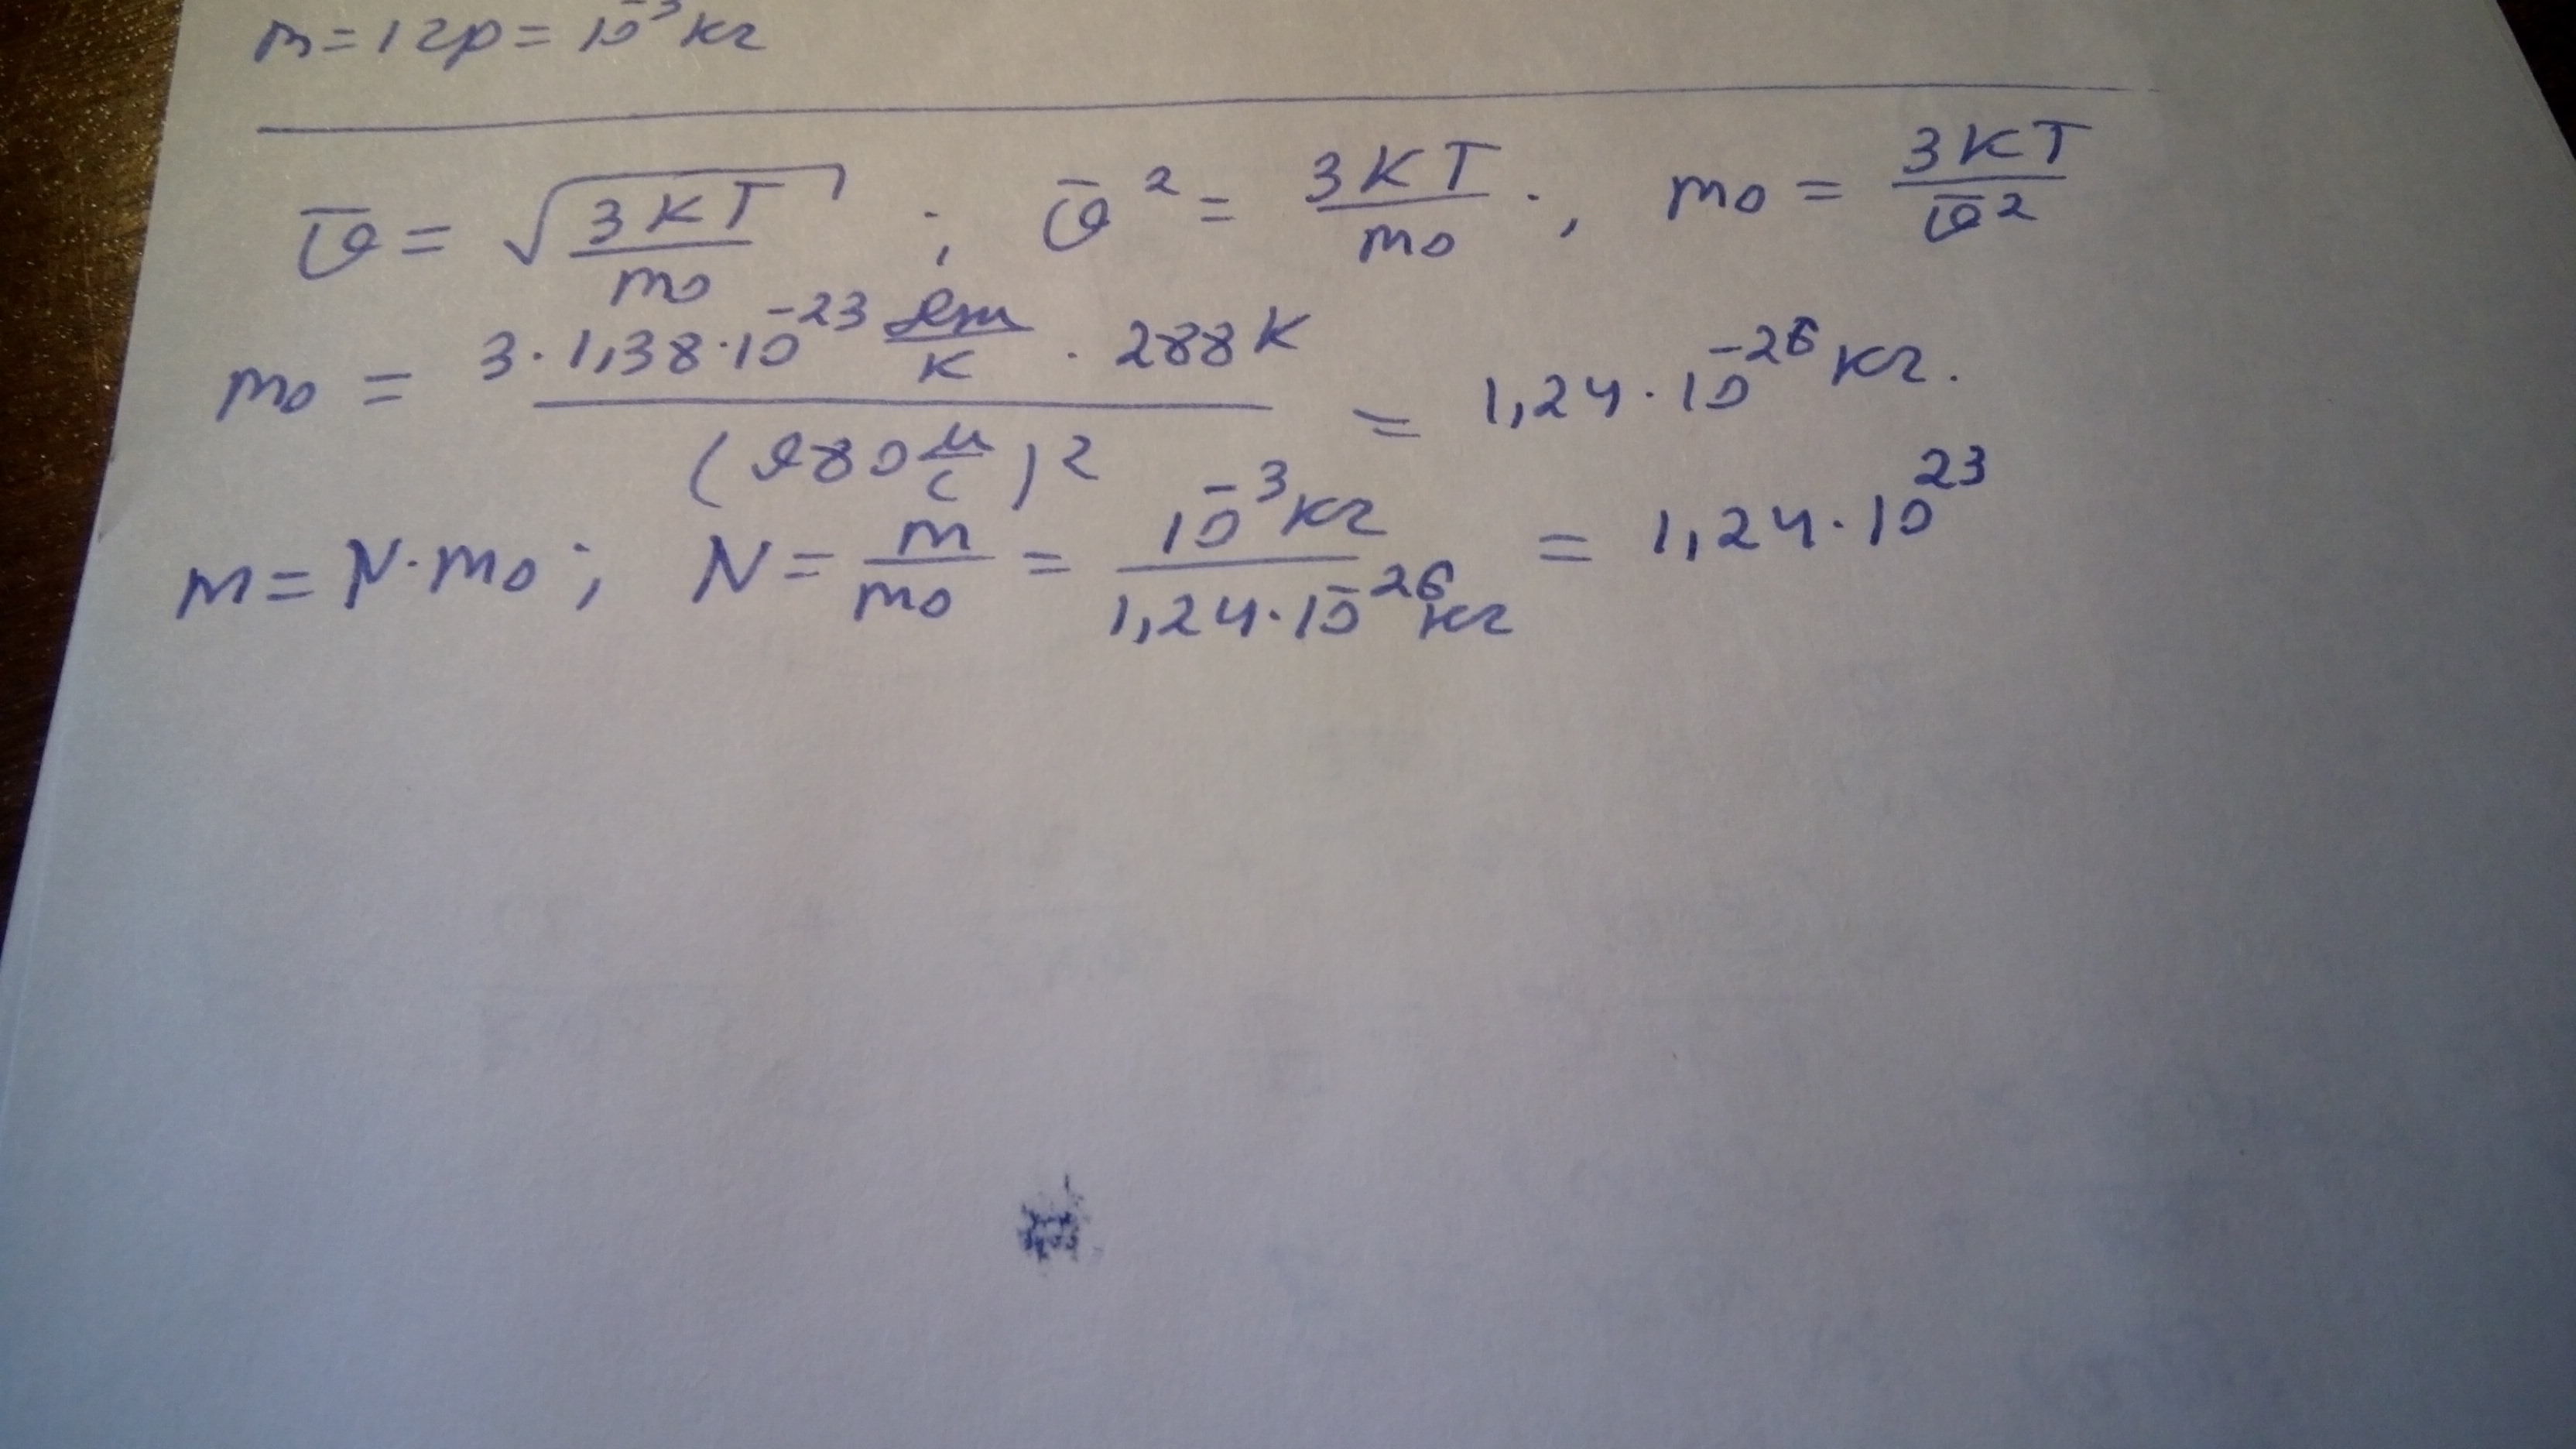 m = 1 гр = 10⁻³ кг
ῡ = √(3KT/m₀) ; ῡ² = 3KT/m₀ ; m₀ = 3KT/ῡ²
m₀ = (3 · 1,38 · 10⁻²³ Дж/К · 288 К)/(980 м/с)² = 1,24 · 10⁻²⁶ кг.
m = N · m₀ ; N = m/m₀ = 10⁻³ кг/1,24 · 10⁻²⁶ кг = 1,24 · 10²³